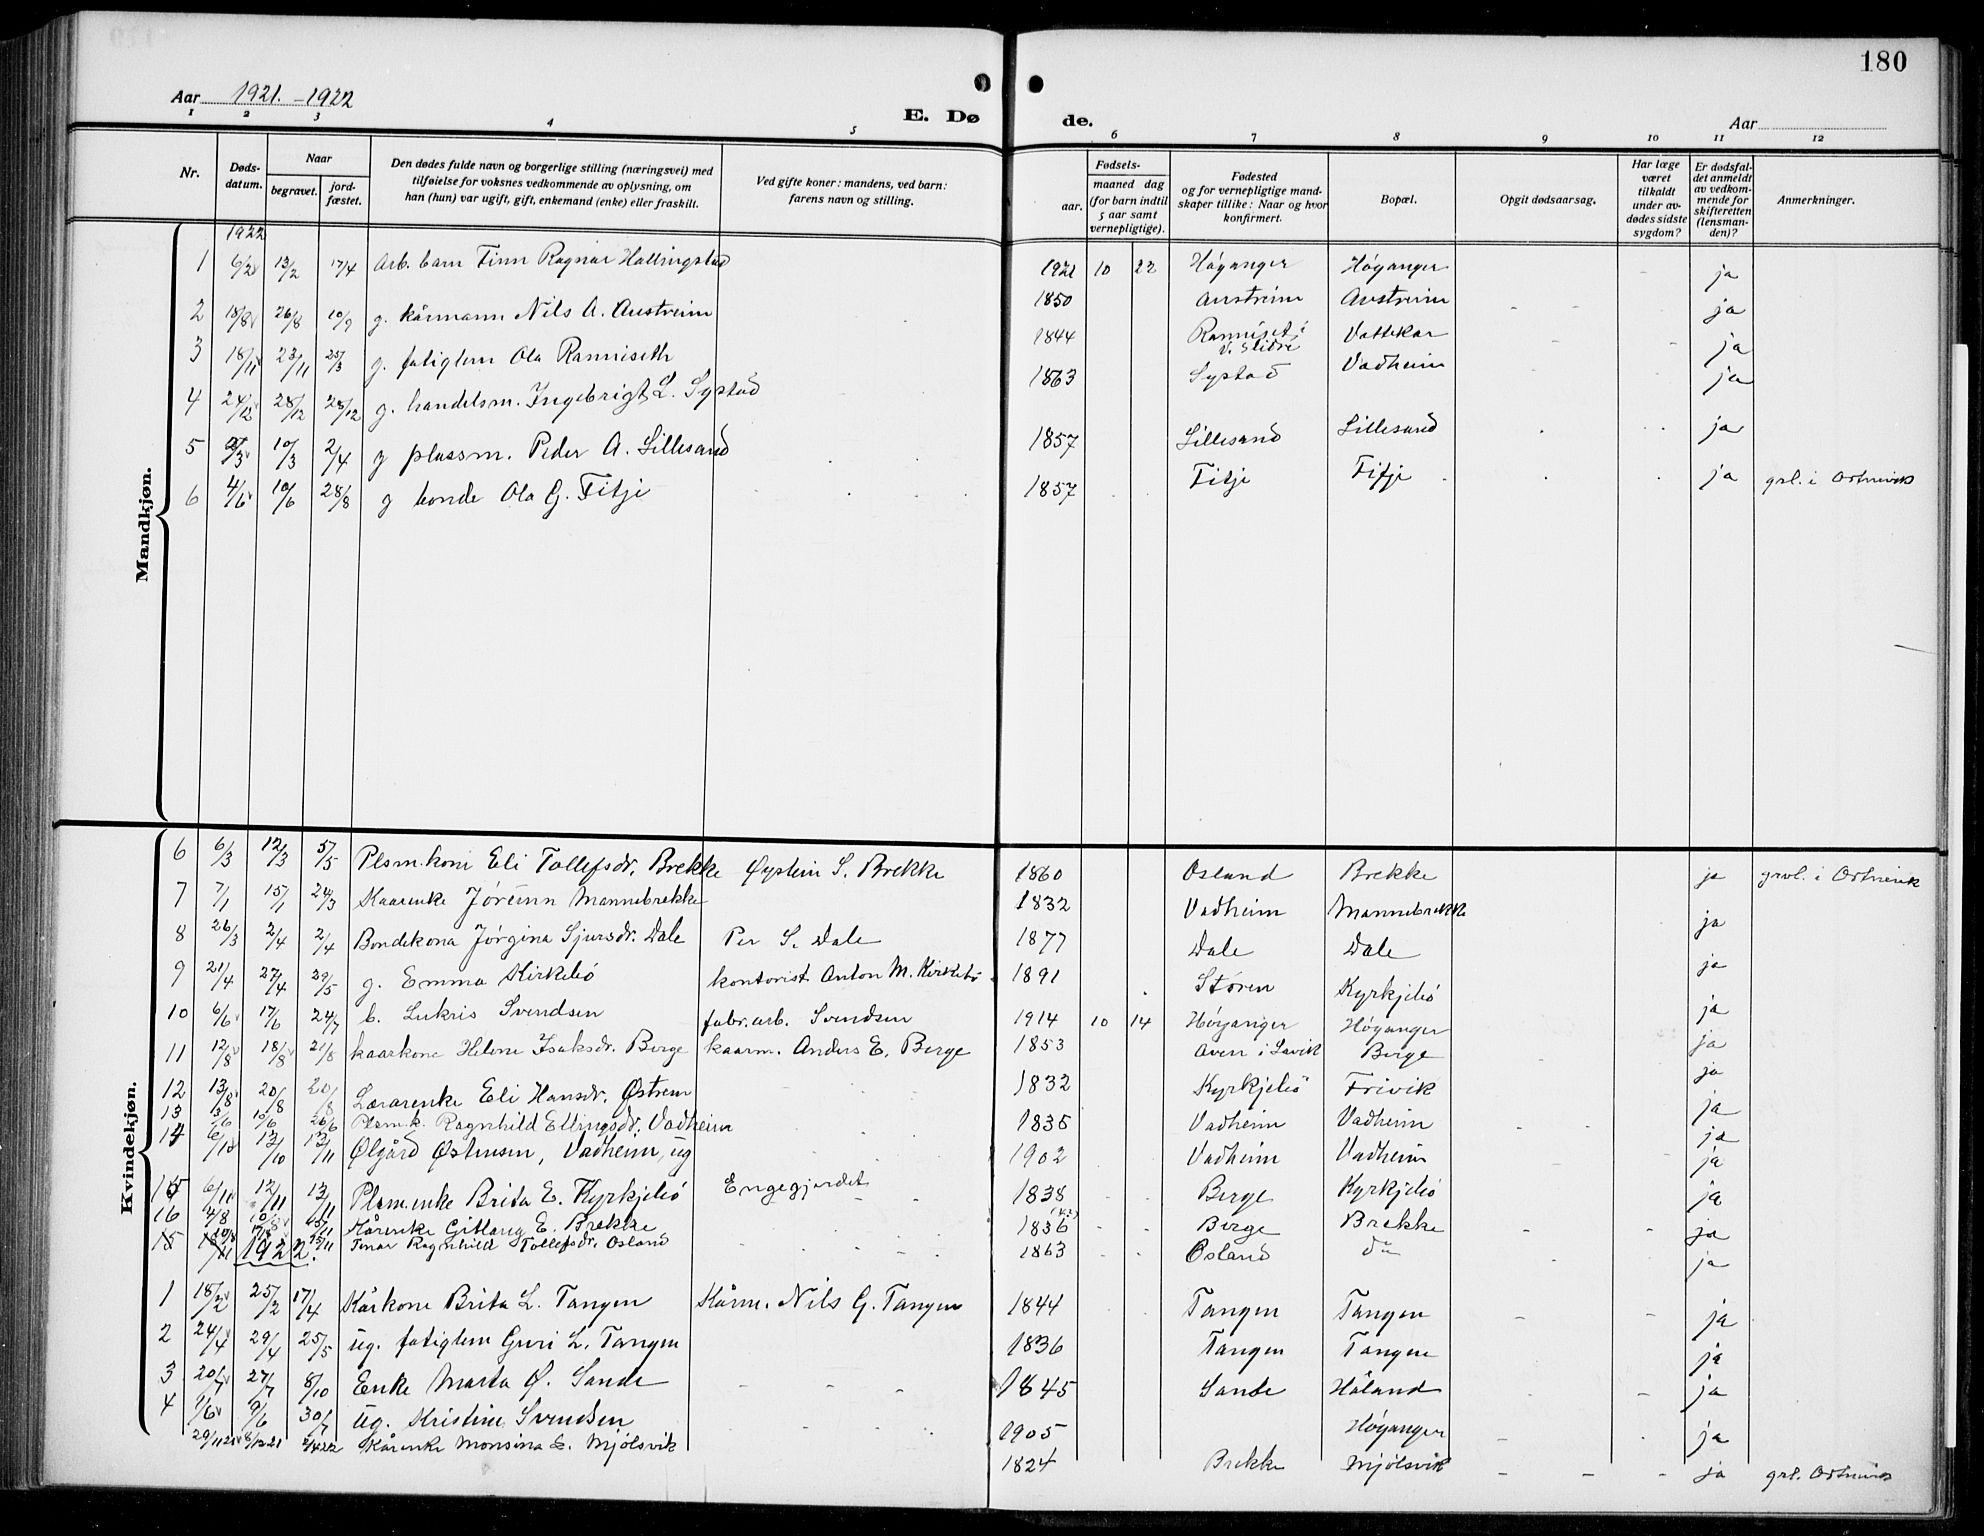 180
Aar 1921.-1922
E. Dø de.
Aar
1 2 3 4 5 6 7 8 9 10 11 12
Nr.
Døds-datum.
Naar
begravet.
jord-fæstet.
Den dødes fulde navn og borgerlige stilling (næringsvei) med
tilføielse for voksnes vedkommende av oplysning, om
han (hun) var ugift, gift, enkemand (enke) eller fraskilt.
Ved gifte koner: mandens, ved barn:
farens navn og stilling.
Fødsels-
aar.
maaned dag
(for barn indtil
5 aar samt
vernepligtige).
Fødested
og for vernepligtige mand-
skaper tillike: Naar og hvor
konfirmert.
Bopæl.
Opgit dødsaarsag.
Har læge
været
tilkaldt
under av-
dødes sidste
sygdom?
Er dødsfal-
det anmeldt
av vedkom-
mende for
skifteretten
(lensman-
den)?
Anmerkninger.
Mandkjøn.
1922
1 6/2 13/2 17/4 Arb. barn Finn Ragnar Hallingstad 1921 10 22 Høyanger Høyanger ja
2 18/8 26/8 10/9 g. kårmann Nils A. Austreim 1850 Austreim Austreim ja
3 18/11 23/11 25/3 g. fatiglem Ola Ranniseth 1844 Ranniset i V. Slidre Vattekar ja
4 24/12 28/12 28/12 g. handelsm. Ingebrigt L. Systad 1863 Systad Vadheim ja
5 /3 10/3 2/4 g plassm. Peder A. Lillesand 1857 Lillesand Lillesand ja
6 4/6 10/6 28/8 g bonde Ola G. Fitje 1857 Fitje Fitje ja grl. i Ortnevik
Kvindekjøn.
6 6/3 12/3 5/5 Plsm.kone Eli Tollefsdr. Brekke Øystein S. Brekke 1860 Osland Brekke ja grvl. i Ortnevik
7 7/1 15/1 24/3 Kaarenke Jøreinn Mannebrekke 1832 Vadheim Mannebrekke ja
8 26/3 2/4 2/4 Bondekona Jørgina Sjursdr. Dale Per S. Dale 1877 Dale Dale ja
9 21/4 27/4 29/5 g. Emma Kirkebø kontorist Anton M. Kirkebø 1891 Støren Kyrkjebø ja
10 6/6 17/6 24/7 b. Lukris Svendsen fabr.arb. Svendsen 1914 10 14 Høyanger Høyanger ja
11 12/8 18/8 21/8 kaarkone Helene Isaksdr. Berge kaarm. Anders E. Berge 1853 Aven i Lavik Berge ja
12 13/8 20/8 20/8 Lærarenke Eli Hansdr. Østrem 1832 Kyrkjebø Frivik ja
13 13/6 19/6 26/6 Plsm.k. Ragnhild Ellingsdr. Vadheim 1835 Vadheim Vadheim ja
14 6/10 13/10 13/11 Ølgård Østensen, Vadheim, ug 1902 Vadheim Vadheim ja
15 6/11 12/11 13/11 Plsm.enke Brita E. Kyrkjebø Engegjerdet 1838 Berge Kyrkjebø ja
16 4/8 10/8 /11 Kårenke Gitlaug E. Brekke 1836 Berge Brekke ja
15 /11 Ragnhild Tollefsdr. Osland 1863 Osland do ja
1922.
1 18/2 25/2 17/4 Kårkone Brita L. Tangen Kårm. Nils G. Tangen 1844 Tangen Tangen ja
2 24/4 29/4 25/5 ug. fatiglem Guri L. Tangen 1836 Tangen Tangen ja
3 20/7 27/7 8/10 Enke Marta Ø. Sande 1845 Sande Håland ja
4 1/6 9/6 30/7 ug. Kristine Svendsen 1905 Høyanger ja
29/11 21 8/12 21 2/4 22 Kårenke Monsina E. Mjølsvik 1824 Brekke Mjølsvik ja grl. Ortnevik